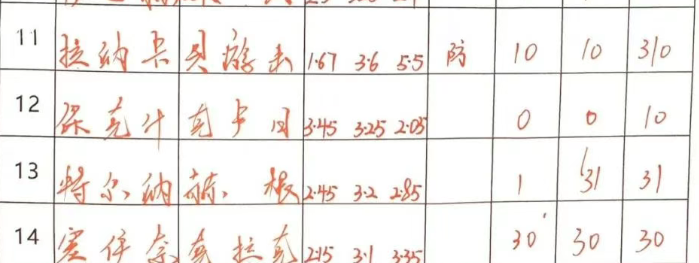 11 拉纳卡 贝游击 1.67 3.6 5.5 防 10 10 310
12 保克什 克卡日 3.45 3.25 2.05 0 0 10
13 特尔纳 赫 根 2.45 3.2 2.85 1 31 31
14 塞伊奈 克拉克 2.15 3.1 3.35 30 30 30